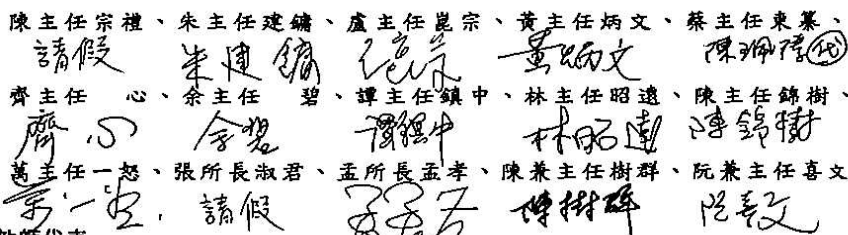 陳主任宗禮、朱主任建鏞、盧主任崑宗、黃主任炳文、蔡主任東纂、
請假 朱建鏞 黃炳文 陳珮 代
齊主任　心、余主任　碧、譚主任鎮中、林主任昭遠、陳主任錦樹、
齊心 余碧 譚鎮中 林昭遠 陳錦樹
萬主任一怒、張所長淑君、孟所長孟孝、陳兼主任樹群、阮兼主任喜文
萬一怒 請假 孟孟孝 陳樹群 阮喜文